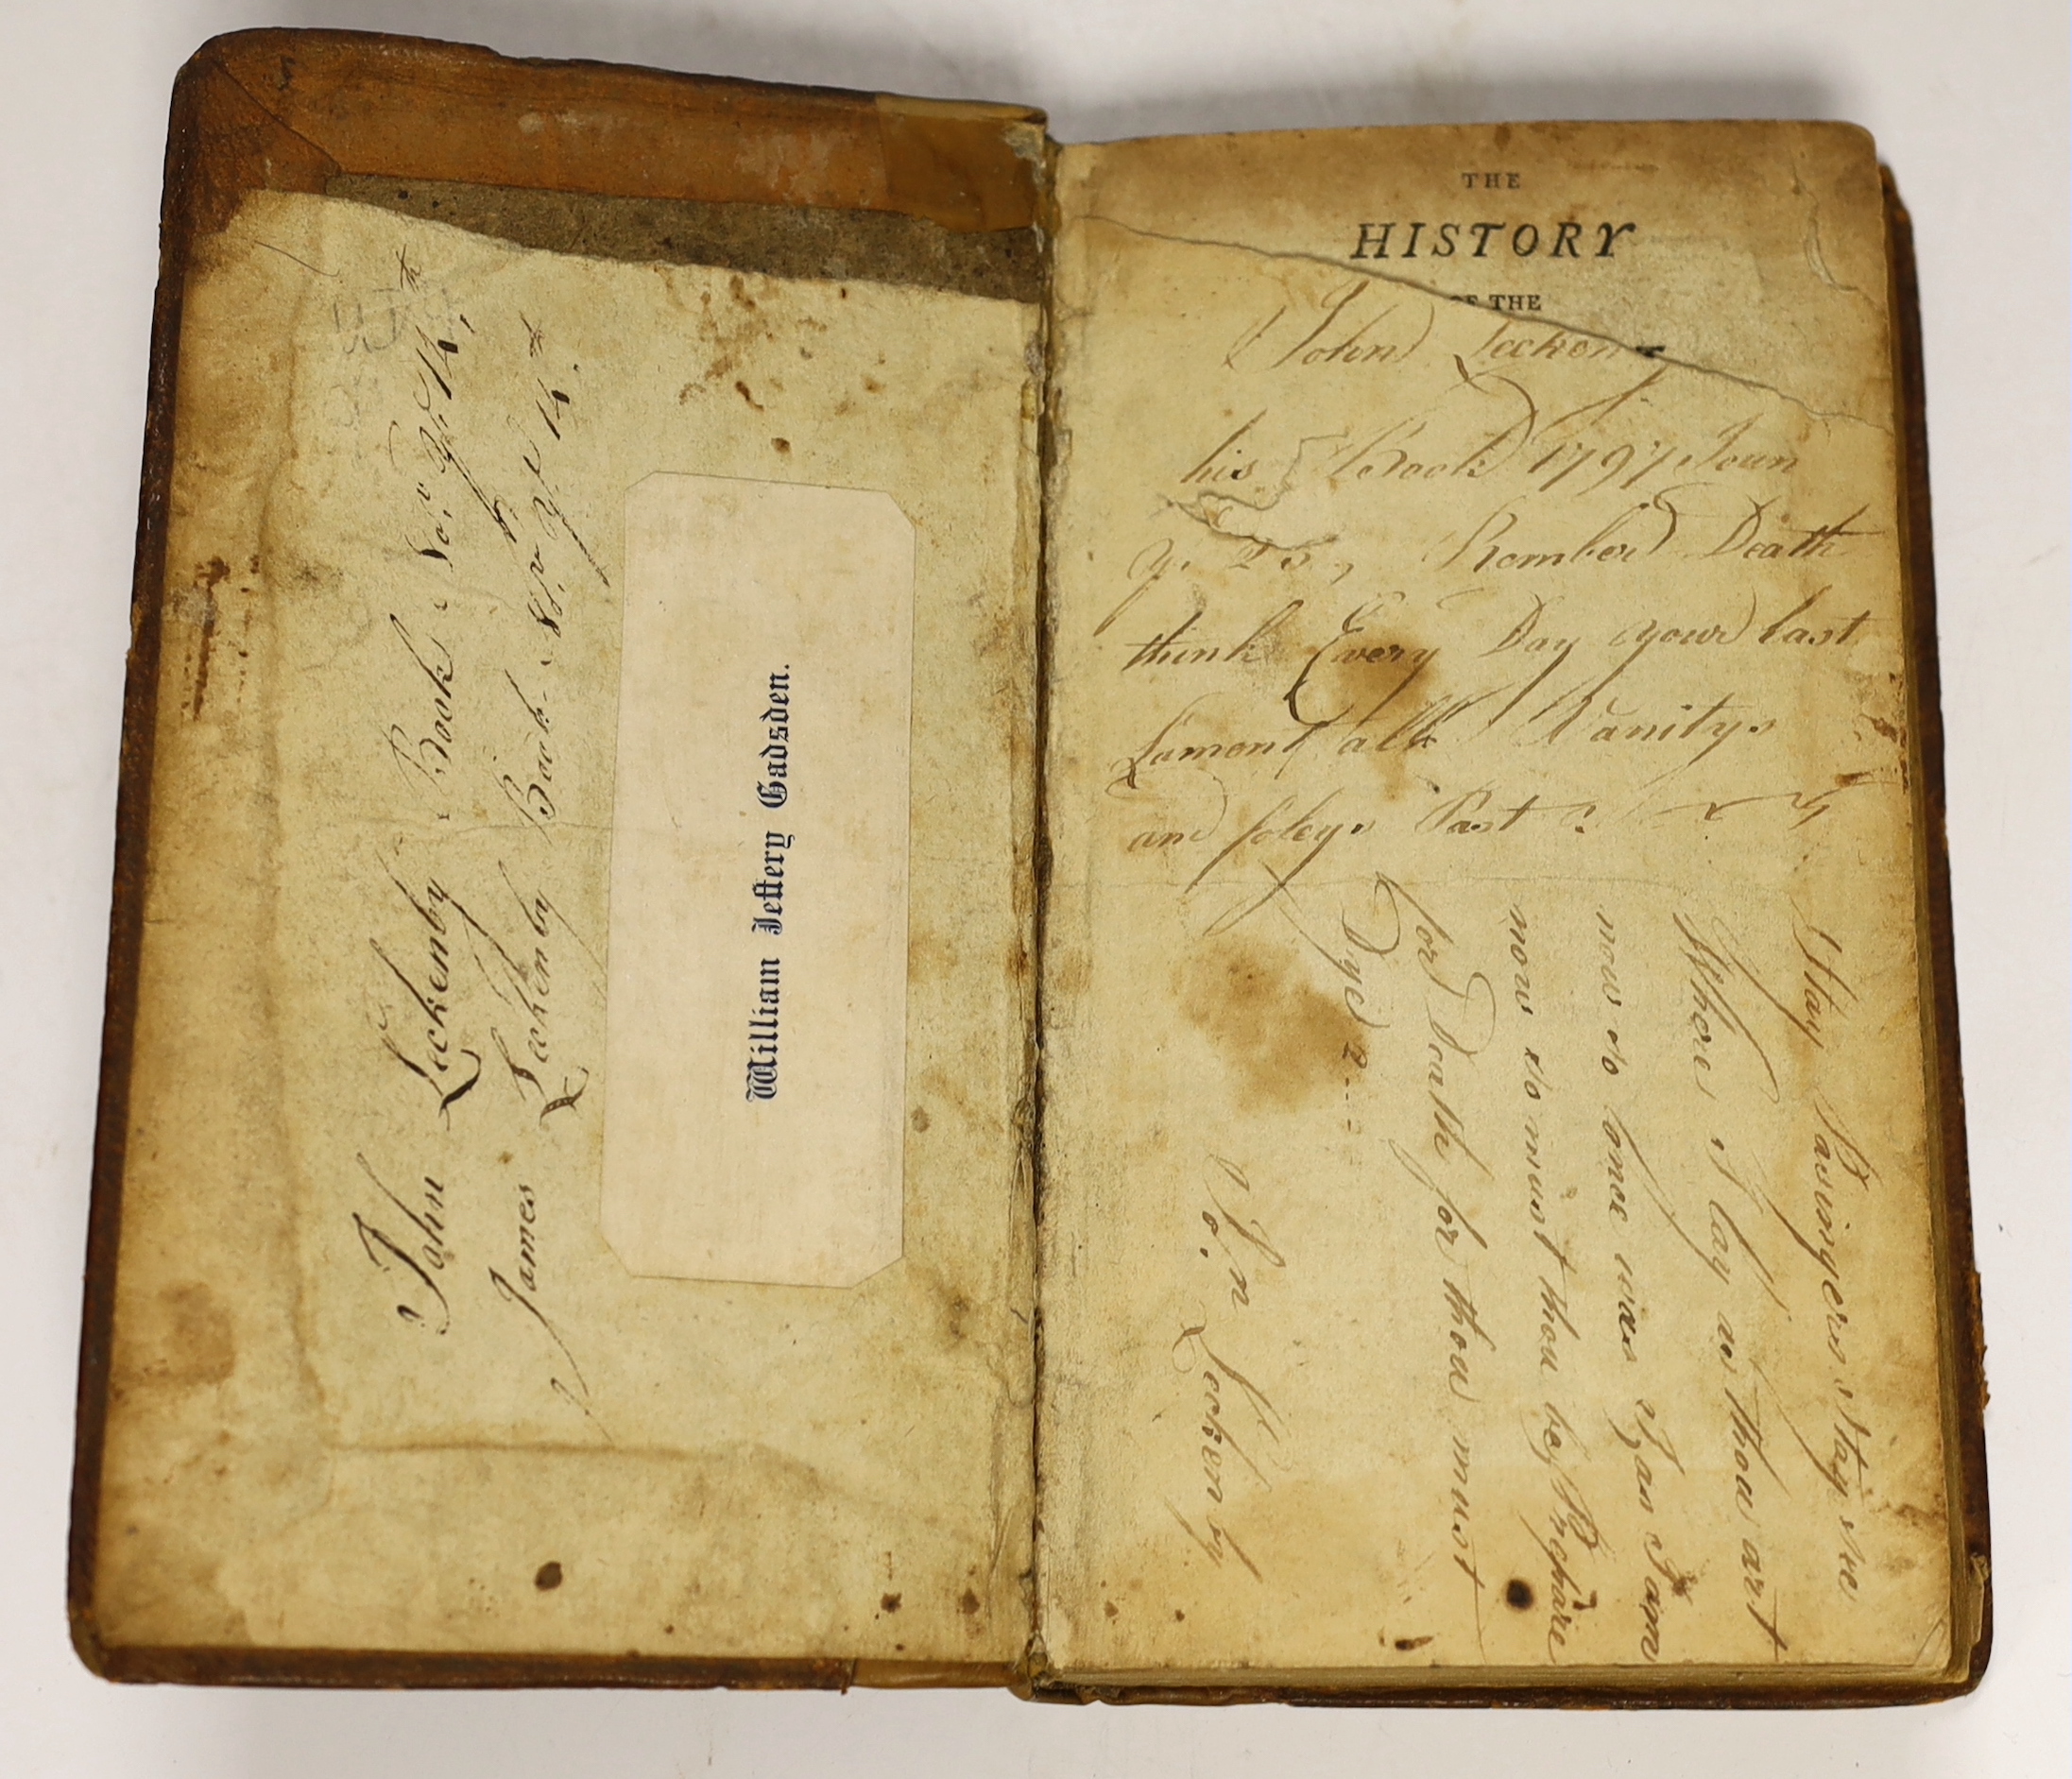 John Leckenby Book
James Leckenby Book
William Jeffery Gadsden.
THE
HISTORY
OF THE
John Lecken
his Book 1797 Joun
y. 25, Rember Death
think Every Day your last
Lament all Vanitys
and foleys Past
Stay Pasingers Stay see
Whou I lay as thou art
now so once was I, as I am
now so must thou be, Prepare
for Death for thou must
Dye
Jo.n Leckenby